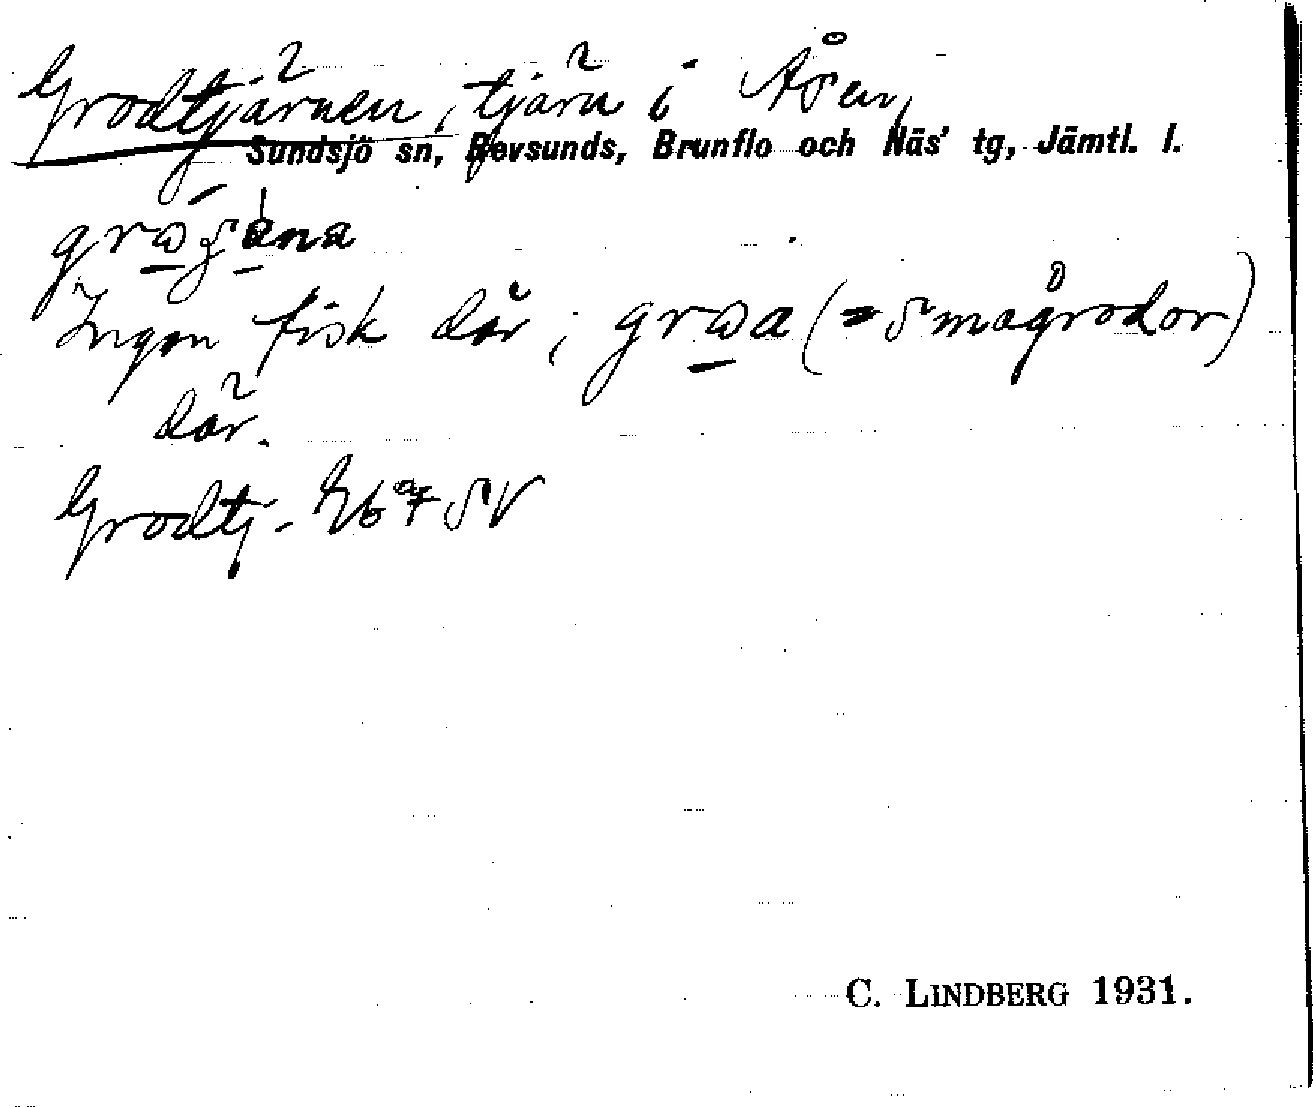 Grodtjärnen, tjärn i Åsen,
Sundsjö sn, Revsunds, Brunflo och Näs' tg, Jämtl. l.
Ingen fisk där, (= smågrodor)
där.
Grodtj. Eb SV
C. LINDBERG 1931.